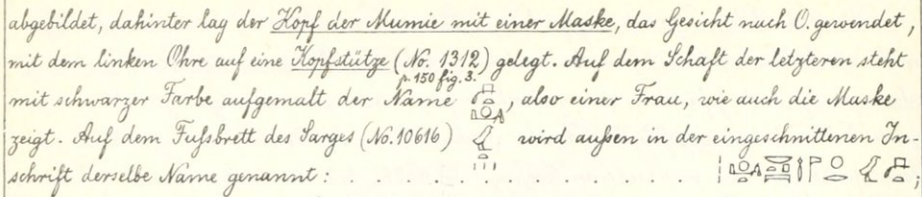 abgebildet, dahinter lag der Kopf der Mumie mit einer Maske, das Gesicht nach O. gewendet,
mit dem linken Ohre auf eine Kopfstütze (No. 1312) gelegt. Auf dem Schaft der letzteren steht
p. 150 fig. 3.
mit schwarzer Farbe aufgemalt der Name , also einer Frau, wie auch die Maske
zeigt. Auf dem Fußbrett des Sarges (No. 10616) wird außen in der eingeschnittenen In-
schrift derselbe Name genannt: . . . . . . . . . . . . ;